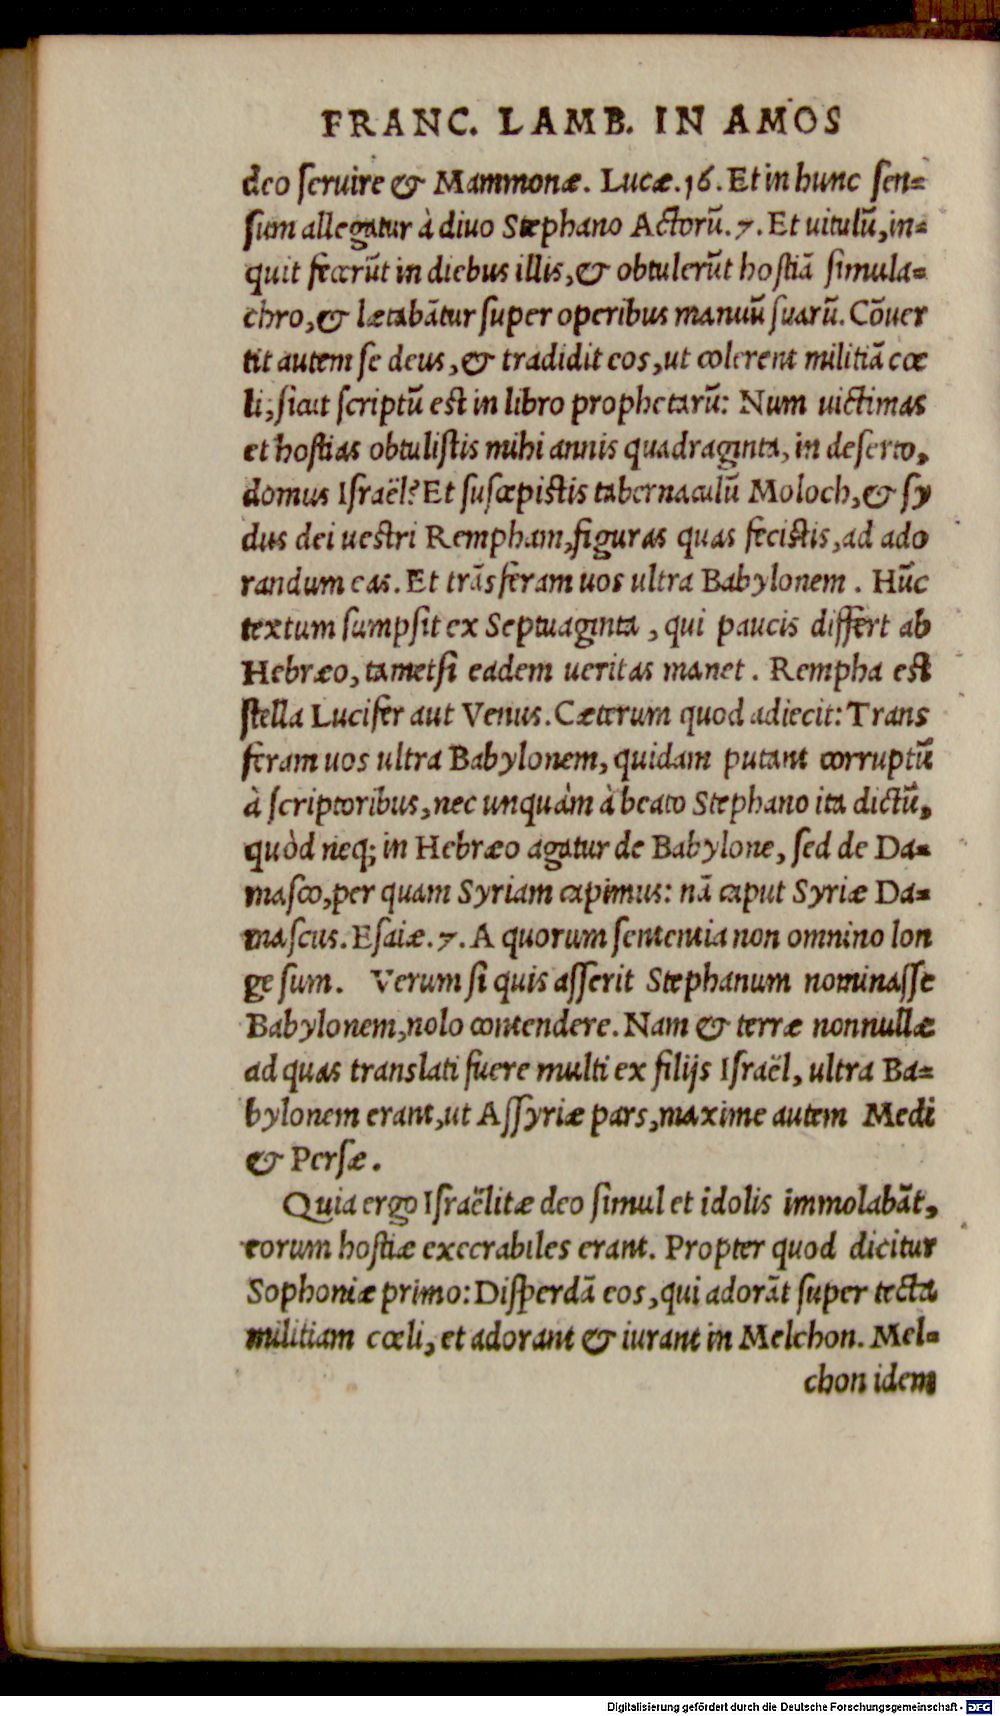 FRANC. LAMB. IN AMOS
deo ſeruire & Mammonæ. Lucæ.16. Et in hunc ſen=
ſum allegatur à diuo Stephano Actorũ.7. Et uitulũ, in=
quit fecerũt in diebus illis, & obtulerũt hoſtiã ſimula=
chro, & lætabãtur ſuper operibus manuũ ſuarũ. Cõuer
tit autem ſe deus, & tradidit eos, ut colerent militiã cœ
li, ſicut ſcriptũ est in libro prophetarũ: Num uictimas
et hoſtias obtuliſtis mihi annis quadraginta, in deſerto,
domus Iſraël? Et ſuſcepistis tabernaculũ Moloch, & ſy
dus dei uestri Rempham, figuras quas feciſtis, ad ado
randum eas. Et trãsferam uos ultra Babylonem . Hũc
textum ſumpſit ex Septuaginta , qui paucis differt ab
Hebræo, tametſi eadem ueritas manet . Rempha est
ſtella Lucifer aut Venus. Cæterum quod adiecit: Trans
feram uos ultra Babylonem, quidam putant corruptũ
à ſcriptoribus, nec unquàm à beato Stephano ita dictũ,
quòd neq; in Hebræo agatur de Babylone, ſed de Da=
maſco, per quam Syriam capimus: nã caput Syriæ Da=
maſcus. Eſaiæ.7. A quorum ſententia non omnino lon
ge ſum. Verum ſi quis aſſerit Stephanum nominaſſe
Babylonem, nolo contendere. Nam & terræ nonnullæ
ad quas translati fuere multi ex filijs Iſraël, ultra Ba=
bylonem erant, ut Aſſyriæ pars, maxime autem Medi
& Perſæ .
Quia ergo Iſraëlitæ deo ſimul et idolis immolabãt,
eorum hoſtiæ execrabiles erant. Propter quod dicitur
Sophoniæ primo: Diſperdã eos, qui adorãt ſuper tecta
militiam cœli, et adorant & iurant in Melchon. Mel=
chon idem
Digitalisierung gefördert durch die Deutsche Forschungsgemeinschaft - DFG